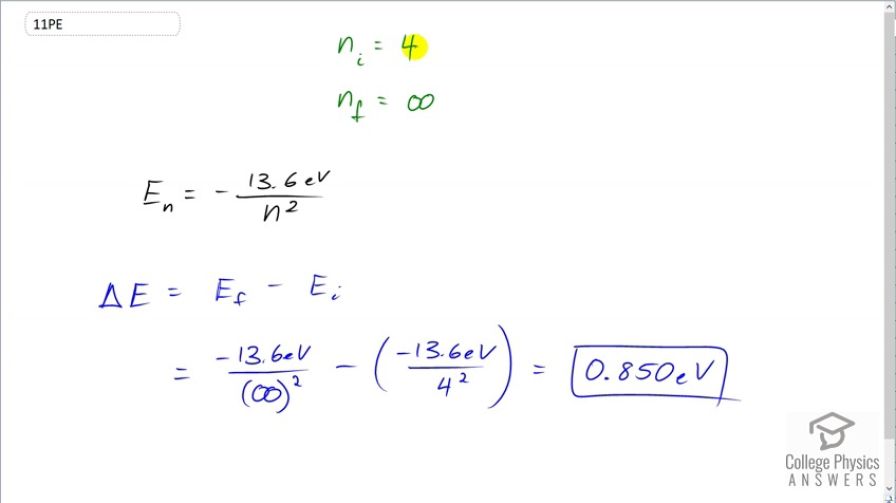 11PE
n_i = 4
n_f = ∞
E_n = - 13.6 eV / n^2
ΔE = E_f - E_i
= -13.6eV / (∞)^2 - (-13.6eV / 4^2) = 0.850eV
College Physics
ANSWERS